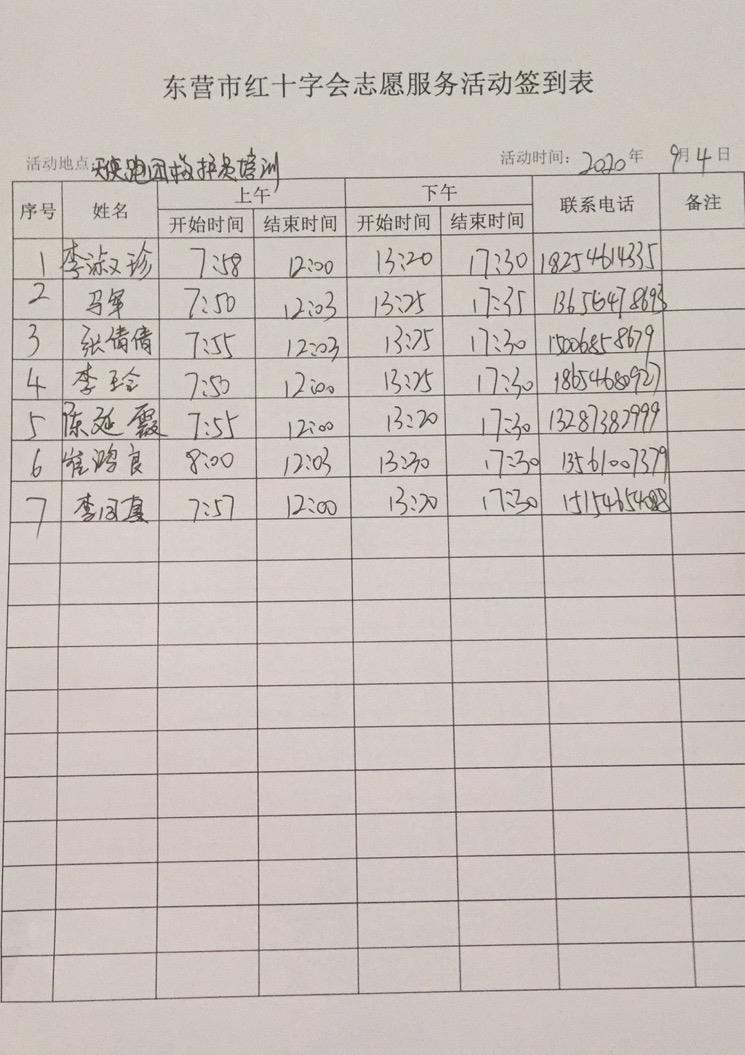 东营市红十字会志愿服务活动签到表
活动地点:天使跑团救护员培训 活动时间: 2020年 9月4日
序号 姓名 上午 下午 联系电话 备注
开始时间 结束时间 开始时间 结束时间
1 李淑珍 7:58 12:00 13:20 17:30 18254614335
2 马军 7:50 12:03 13:25 17:35
3 张倩倩 7:55 12:03 13:25 17:30 15006858679
4 李玲 7:50 12:00 13:25 17:30 18654680927
5 陈延霞 7:55 12:00 13:20 17:30 13287382999
6 崔鸿良 8:00 12:03 13:30 17:30 13561007379
7 7:57 12:00 13:20 17:30 15154654088